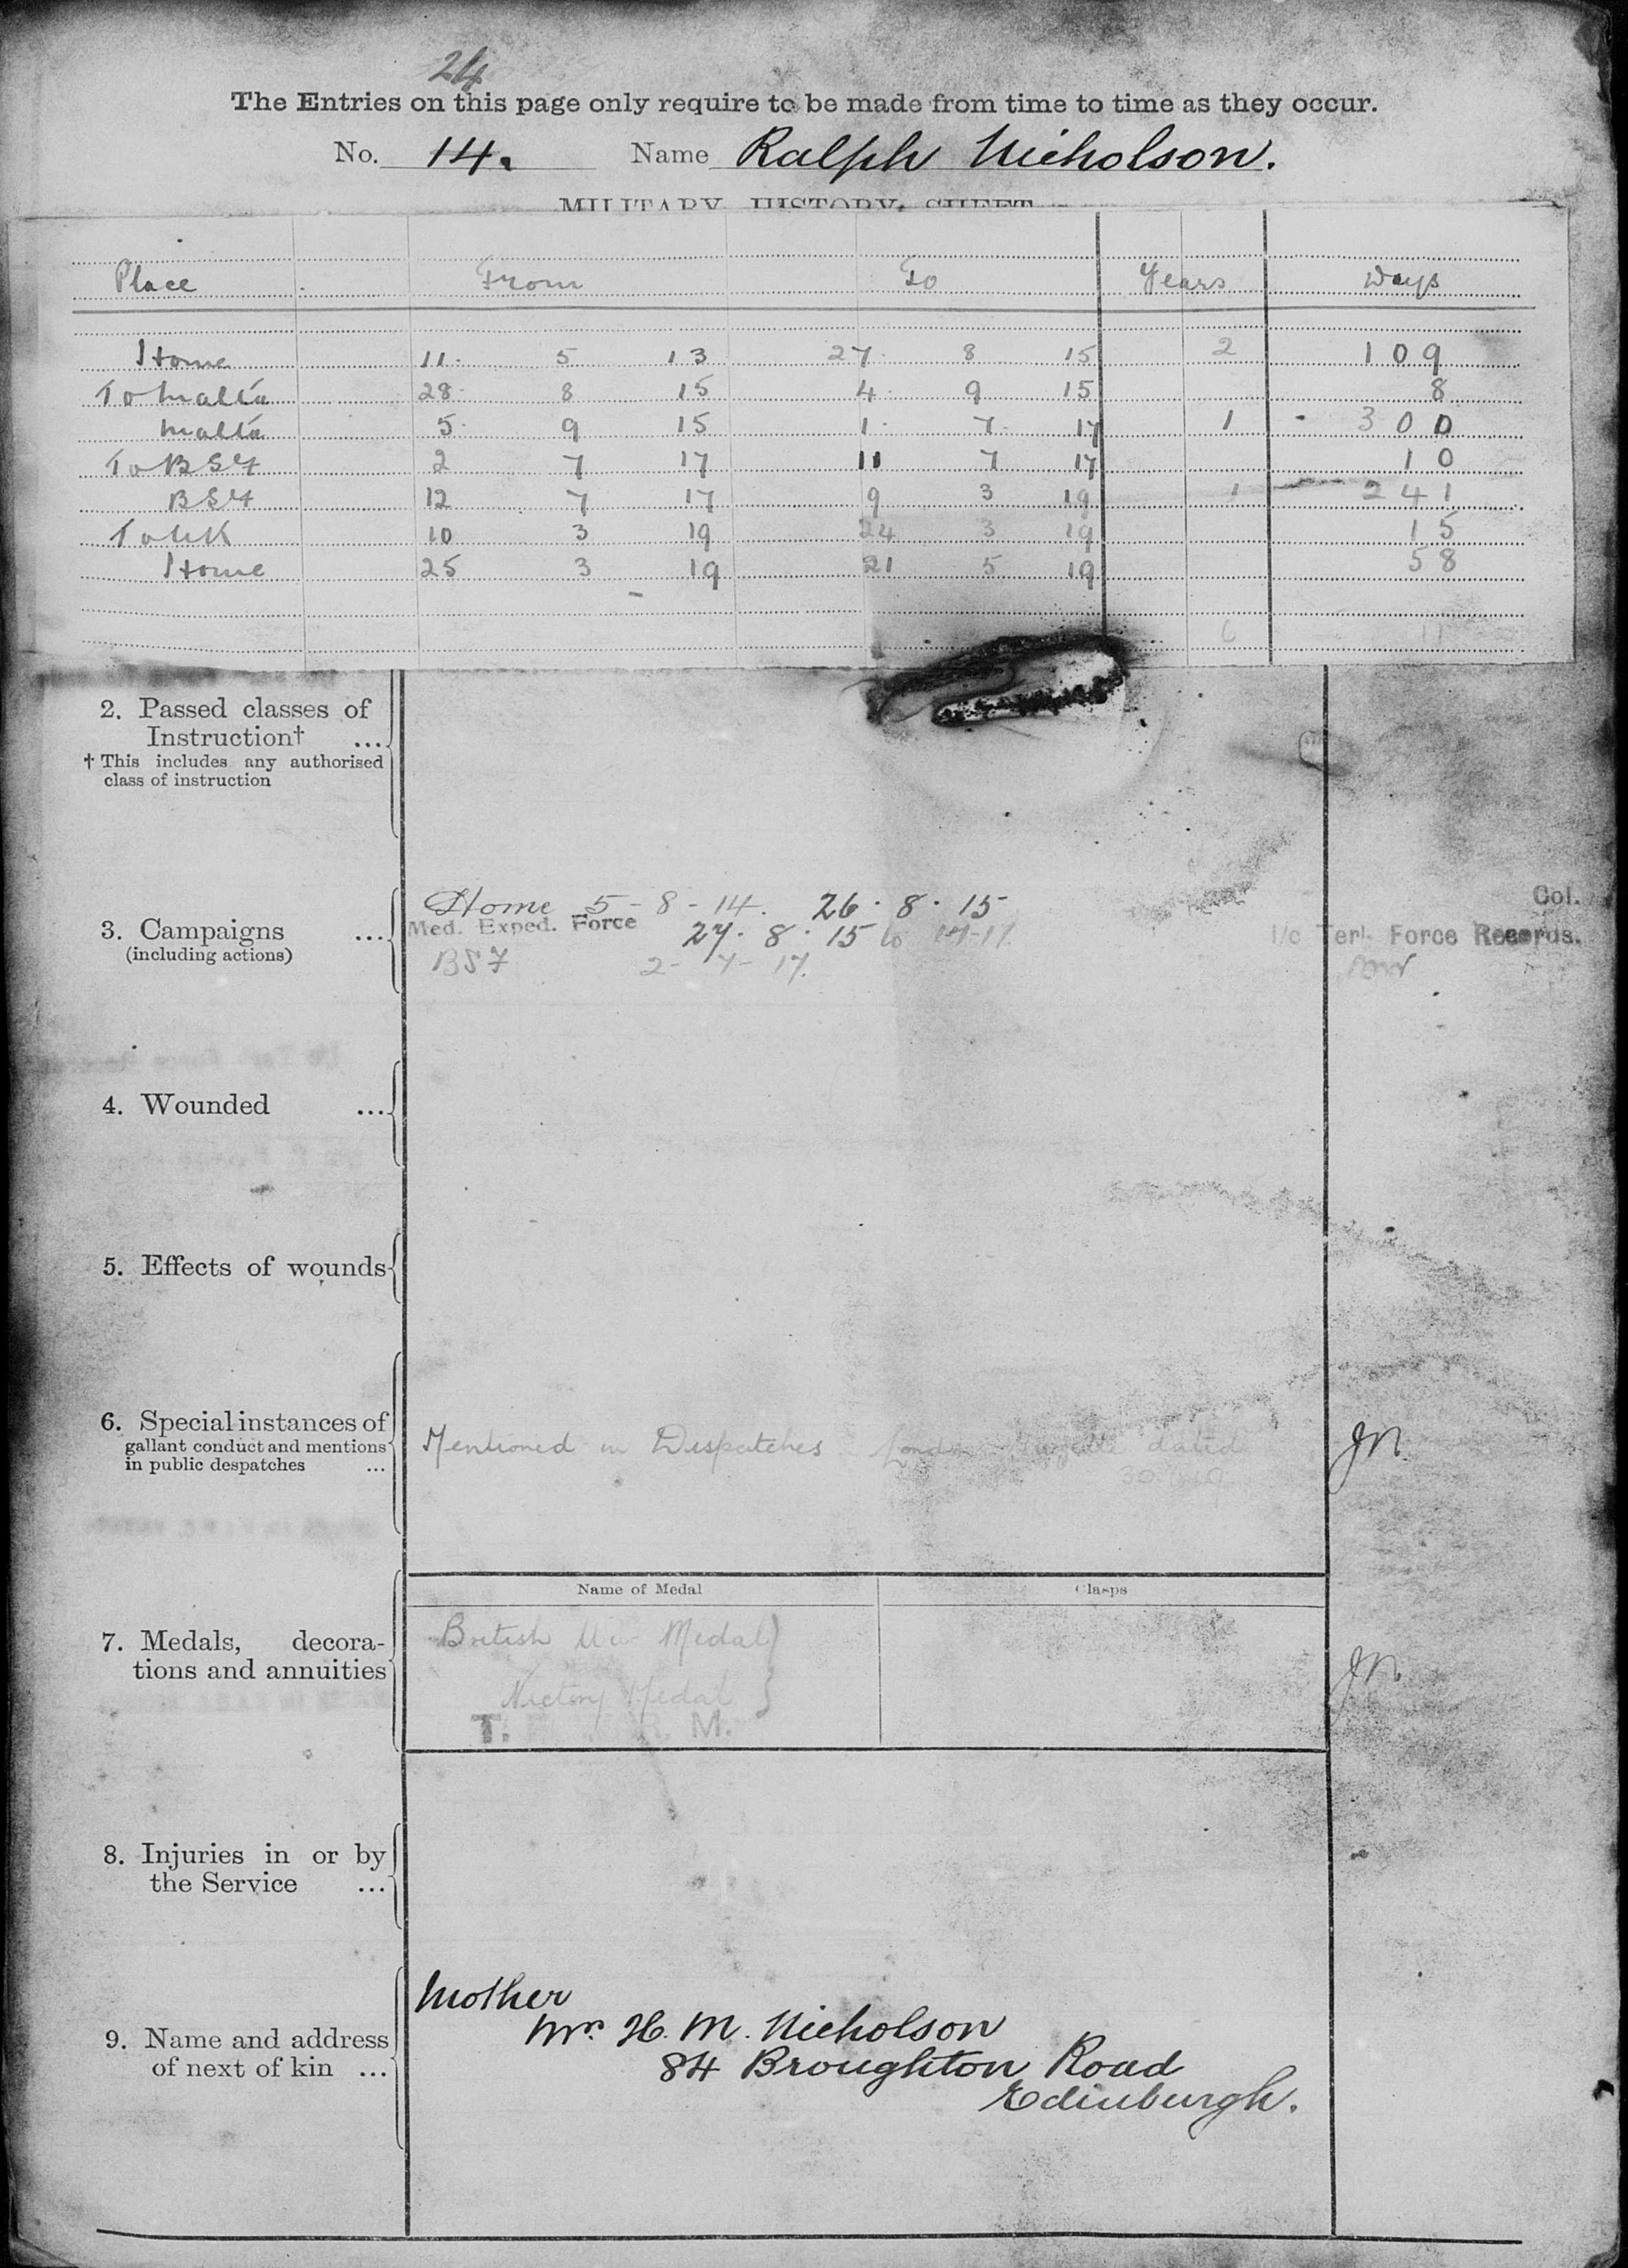 24
The Entries on this page only require to be made from time to time as they occur.
No. 14. Name Ralph Nicholson.
MILITARY HISTORY SHEET
Place From To Years Days
Home 11. 5 13 27. 8 15 2 109
To Malta 28. 8 15 4. 9 15 8
Malta 5. 9 15 1. 7. 17 1 - 300
To BSF 2 7 17 11 7 17 10
BSF 12 7 17 9 3 19 1 241
To UK 10 3 19 24 3 19 15
Home 25 3 19 21 5 19 58
6 11
2. Passed classes of
Instruction† ...
† This includes any authorised
class of instruction
Home 5 - 8 - 14. 26 · 8 · 15 Col.
3. Campaigns ... Med. Exped. Force 27 · 8 · 15 to I/c Terl. Force Records.
(including actions)
BSF 2 - 7 - 17.
4. Wounded ...
5. Effects of wounds
6. Special instances of
gallant conduct and mentions
in public despatches ...
Mentioned in Despatches London Gazette dated JN
Name of Medal Clasps
7. Medals, decora-
tions and annuities
British War Medal }
Victory Medal } JN
T. M.
8. Injuries in or by
the Service ...
Mother
9. Name and address
of next of kin ...
Mrs. H. M. Nicholson
84 Broughton Road
Edinburgh.